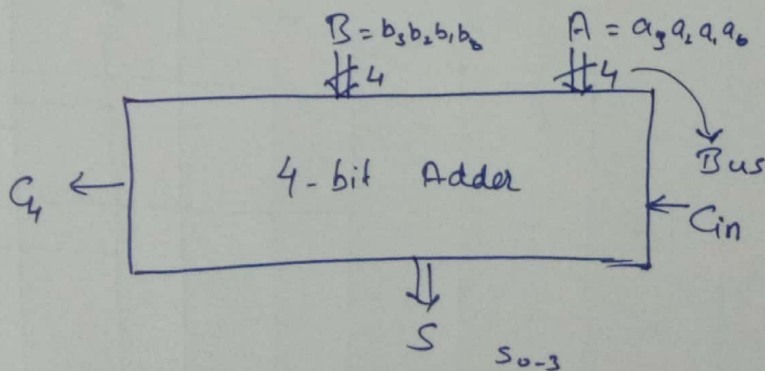 B = b₃b₂b₁b₀ A = a₃a₂a₁a₀
4 4
Bus
4-bit Adder
C₄
Cin
S S₀₋₃